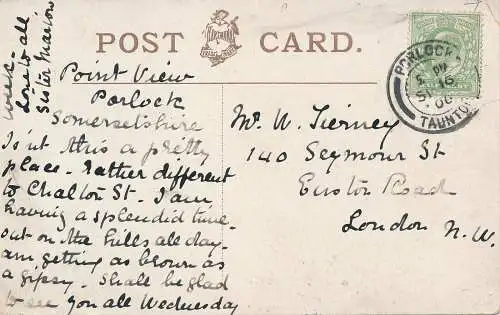 POST CARD.
Point View
Porlock
Somersetshire
Isn't this a pretty
place. Rather different
to Chalton St. I am
having a splendid time.
out on the hills all day.
am getting as brown as
a gipsy. Shall be glad
to see you all Wednesday
week.
Love to all
Sister Marion
Mr. W. Tierney
140 Seymour St
Euston Road
London N.W.
PORLOCK
5 PM
16
06
TAUNTON